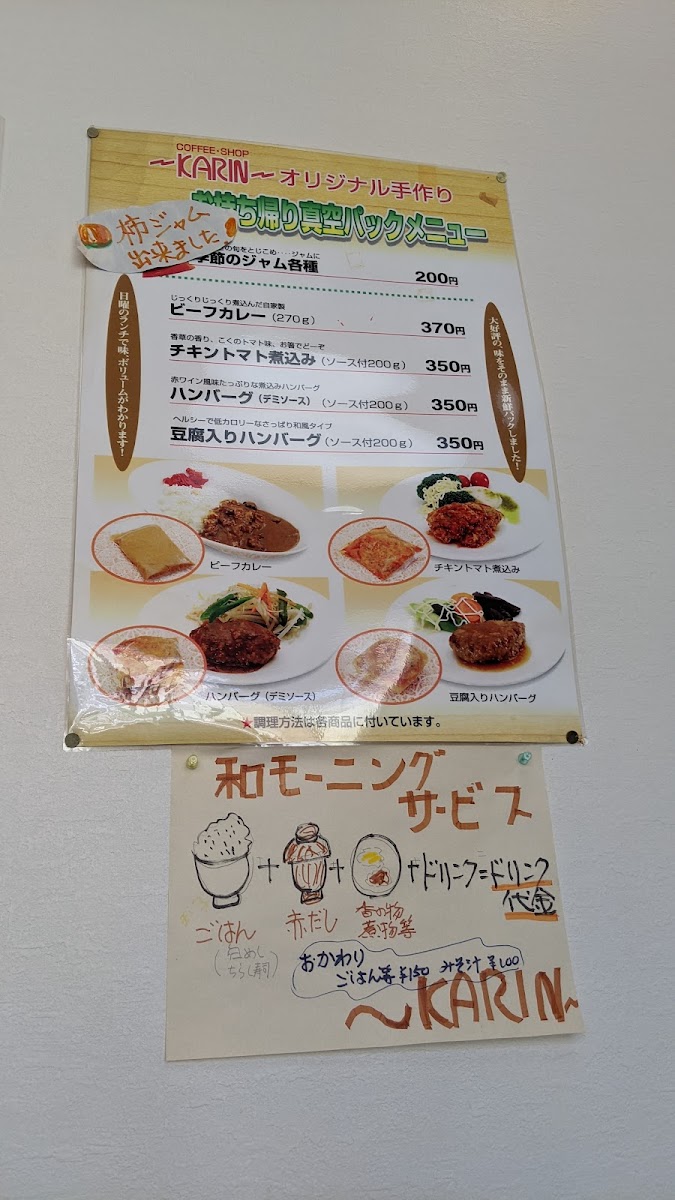 COFFEE・SHOP
～KARIN～オリジナル手作り
お持ち帰り真空パックメニュー
柿ジャム
出来ました。
の旬をとじこめ‥‥ジャムに
季節のジャム各種 200円
じっくりじっくり煮込んだ自家製
ビーフカレー（270g） 370円
香草の香り、こくのトマト味、お箸でどーぞ
チキントマト煮込み（ソース付200g） 350円
赤ワイン風味たっぷりな煮込みハンバーグ
ハンバーグ（デミソース）（ソース付200g） 350円
ヘルシーで低カロリーなさっぱり和風タイプ
豆腐入りハンバーグ（ソース付200g） 350円
日曜のランチで味、ボリュームがわかります！
大好評の、味をそのまま新鮮パックしました！
ビーフカレー
チキントマト煮込み
ハンバーグ（デミソース）
豆腐入りハンバーグ
★調理方法は各商品に付いています。
和モーニング
サービス
+ + +ドリンク=ドリンク
代金
ごはん
赤だし
香の物
煮物等
おかわり
ごはん等¥150 みそ汁¥100
～KARIN～